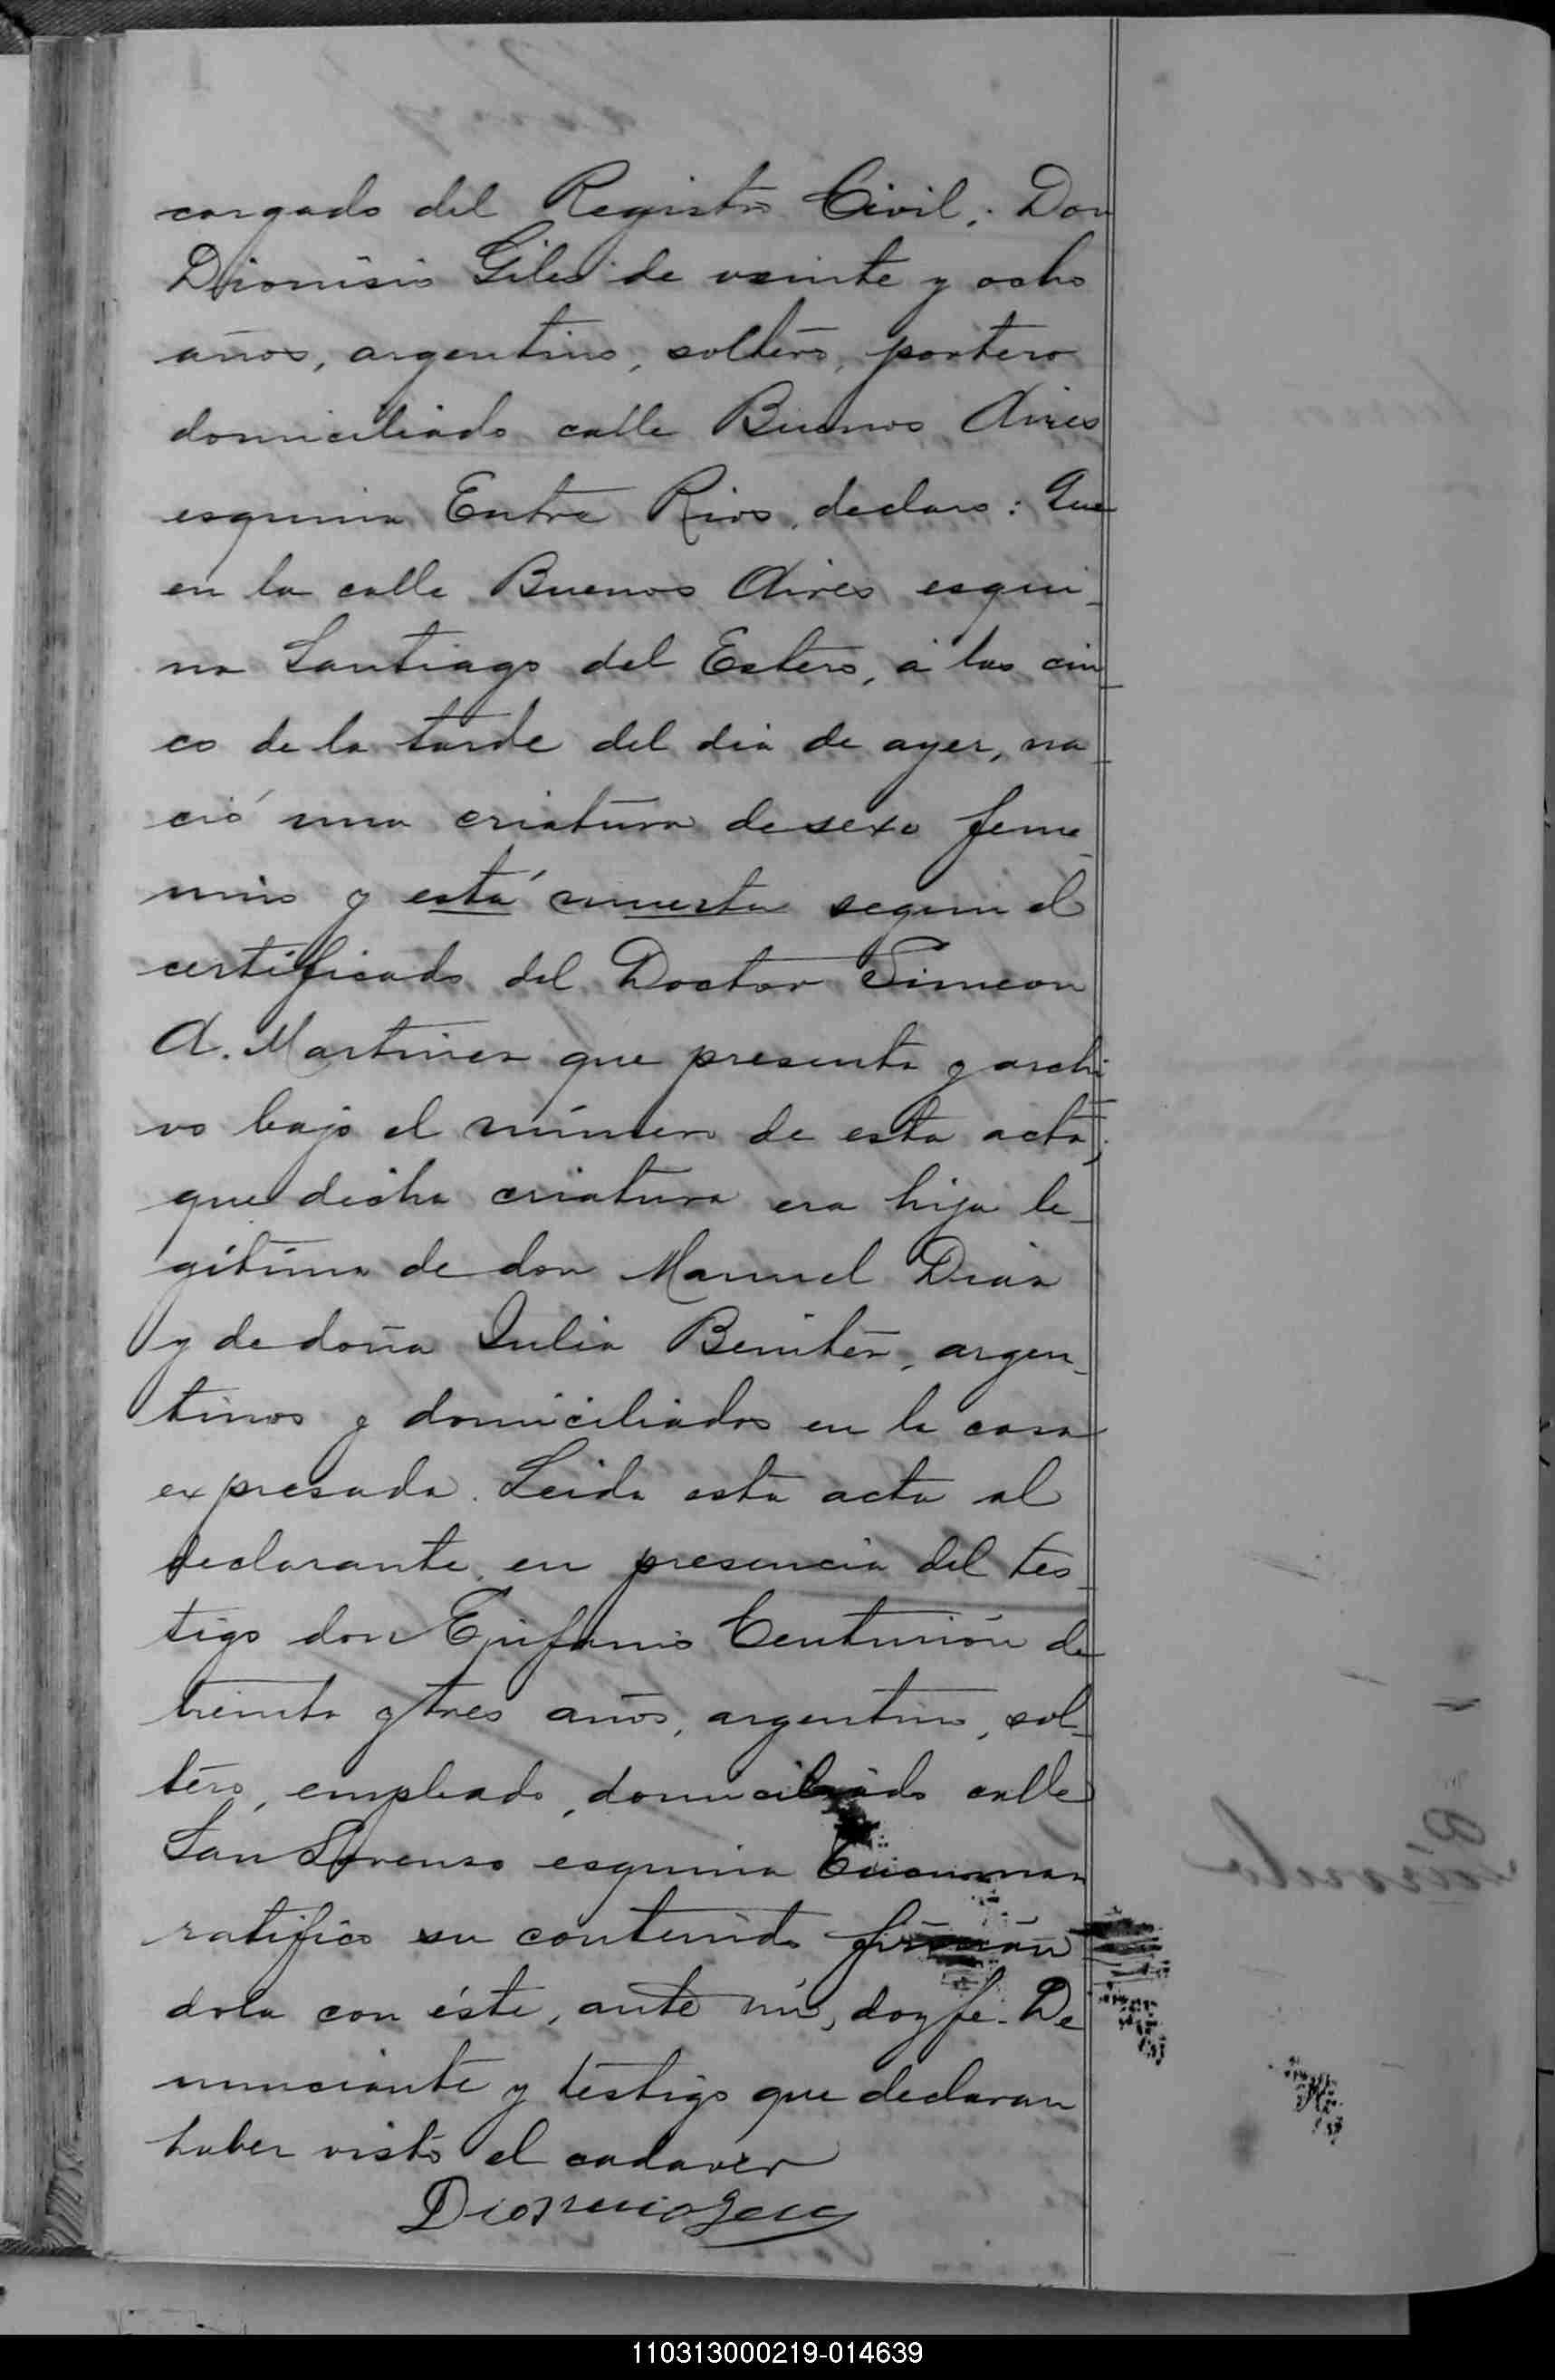 cargado del Registro Civil; Don
Dionisio Giles de veinte y ocho
años, argentino, soltero, portero
domiciliado calle Buenos Aires
esquina Entre Rios, declaro: Que
en la calle Buenos Aires esqui-
na Santiago del Estero, á las cin-
co de la tarde del dia de ayer, na-
ció una criatura de sexo feme-
nino y está muerta segun el
certificado del Doctor Simeon
A. Martinez que presenta y archi-
vo bajo el número de esta acta;
que dicha criatura era hija le-
gítima de don Manuel Diaz
y de doña Julia Benitez, argen-
tinos y domiciliados en la casa
expresada. Leida esta acta al
declarante en presencia del tes-
tigo don Epifanio Centurión de
treinta y tres años, argentino, sol-
tero, empleado, domiciliado calle
San Lorenzo esquina Tucuman
ratifico su contenido firmán
dola con éste, ante mí, doy fé. De
nunciante y testigo que declaran
haber visto el cadaver
Dionicio
110313000219-014639